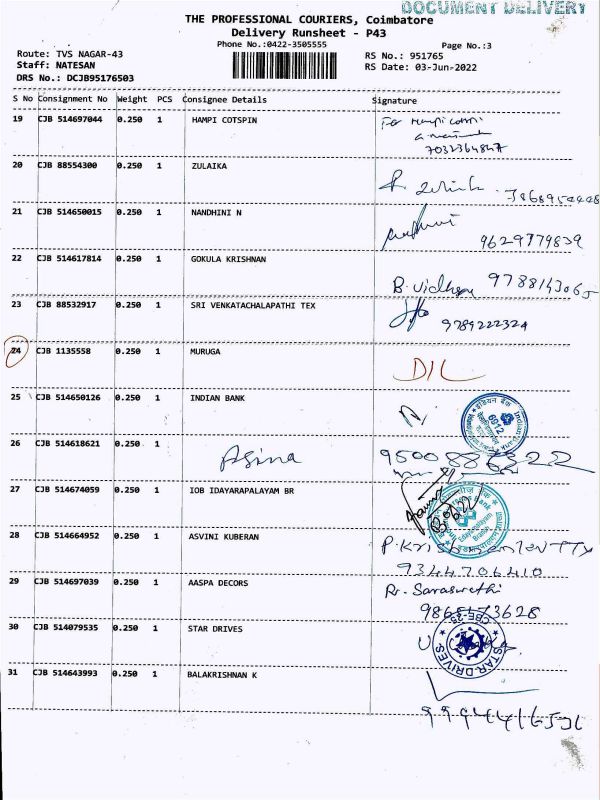 DOCUMENT DELIVERY
THE PROFESSIONAL COURIERS, Coimbatore
Delivery Runsheet - P43
Phone No.:0422-3505555
Page No.:3
Route: TVS NAGAR-43
RS No.: 951765
Staff: NATESAN
RS Date: 03-Jun-2022
DRS No.: DCJB95176503
S No Consignment No Weight PCS Consignee Details Signature
19 CJB 514697044 0.250 1 HAMPI COTSPIN For Hampi
20 CJB 88554300 0.250 1 ZULAIKA
21 CJB 514650015 0.250 1 NANDHINI N
9629779839
22 CJB 514617814 0.250 1 GOKULA KRISHNAN
B. Vidhya
23 CJB 88532917 0.250 1 SRI VENKATACHALAPATHI TEX
9789222324
24 CJB 1135558 0.250 1 MURUGA
D/L
25 CJB 514650126 0.250 1 INDIAN BANK
6012
26 CJB 514618621 0.250 1 Asina
27 CJB 514674059 0.250 1 IOB IDAYARAPALAYAM BR
28 CJB 514664952 0.250 1 ASVINI KUBERAN
9344706410
29 CJB 514697039 0.250 1 AASPA DECORS
Saraswathi
30 CJB 514079535 0.250 1 STAR DRIVES
STAR DRIVES
31 CJB 514643993 0.250 1 BALAKRISHNAN K